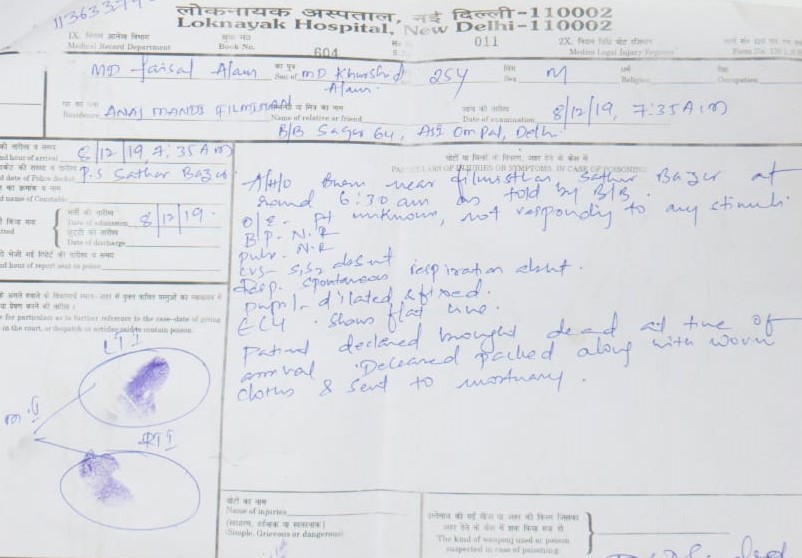 11363379
लोकनायक अस्पताल, नई दिल्ली-110002
Loknayak Hospital, New Delhi-110002
Medical Record Department
Book No.
604
011
Medico Legal Injury Register
MD Faisal Alam
का पुत्र
Son of MD Khurshid Alam.
25Y
लिंग
Sex M
धर्म
Religion
Occupation
Residence ANAJ MANDI FILMISTAN
या मित्र का नाम
Name of relative or friend
B/B Sagar 64, ASI Om Pal, Delhi.
जांच की तारीख
Date of examination 8/12/19, 7:35 AM
की तारीख व समय
nd hour of arrival 8/12/19, 7:35 AM
P.S Sathar Bazar
nd name of Constable
भर्ती की तारीख
Date of admission 8/12/19.
छुट्टी की तारीख
Date of discharge
nd hour of report sent to police
चोटों या चिन्हों के विवरण, जहर देने के केस में
PARTICULARS OF INJURIES OR SYMPTOMS, IN CASE OF POISONING
A/H/O Burn near filmisthan Sathar Bazar at
round 6:30 am as told by B/B.
O/E - pt unknown, not responding to any stimuli
B.P - N.R
pulse - N.R
CVS - S1S2 absent
Resp. spontaneous respiration absent.
pupil - dilated & fixed.
ECG - shows flat line.
Patient declared brought dead at time of
arrival. Deceased packed along with worn
cloths & sent to mortuary.
for particulars as to further reference to the case-date of giving
in the court, or despatch or articles said to contain poison.
LTI
RTI
चोटों का नाम
Name of injuries
Simple, Grievous or dangerous
The kind of weapong used or poison
suspected in case of poisoning.